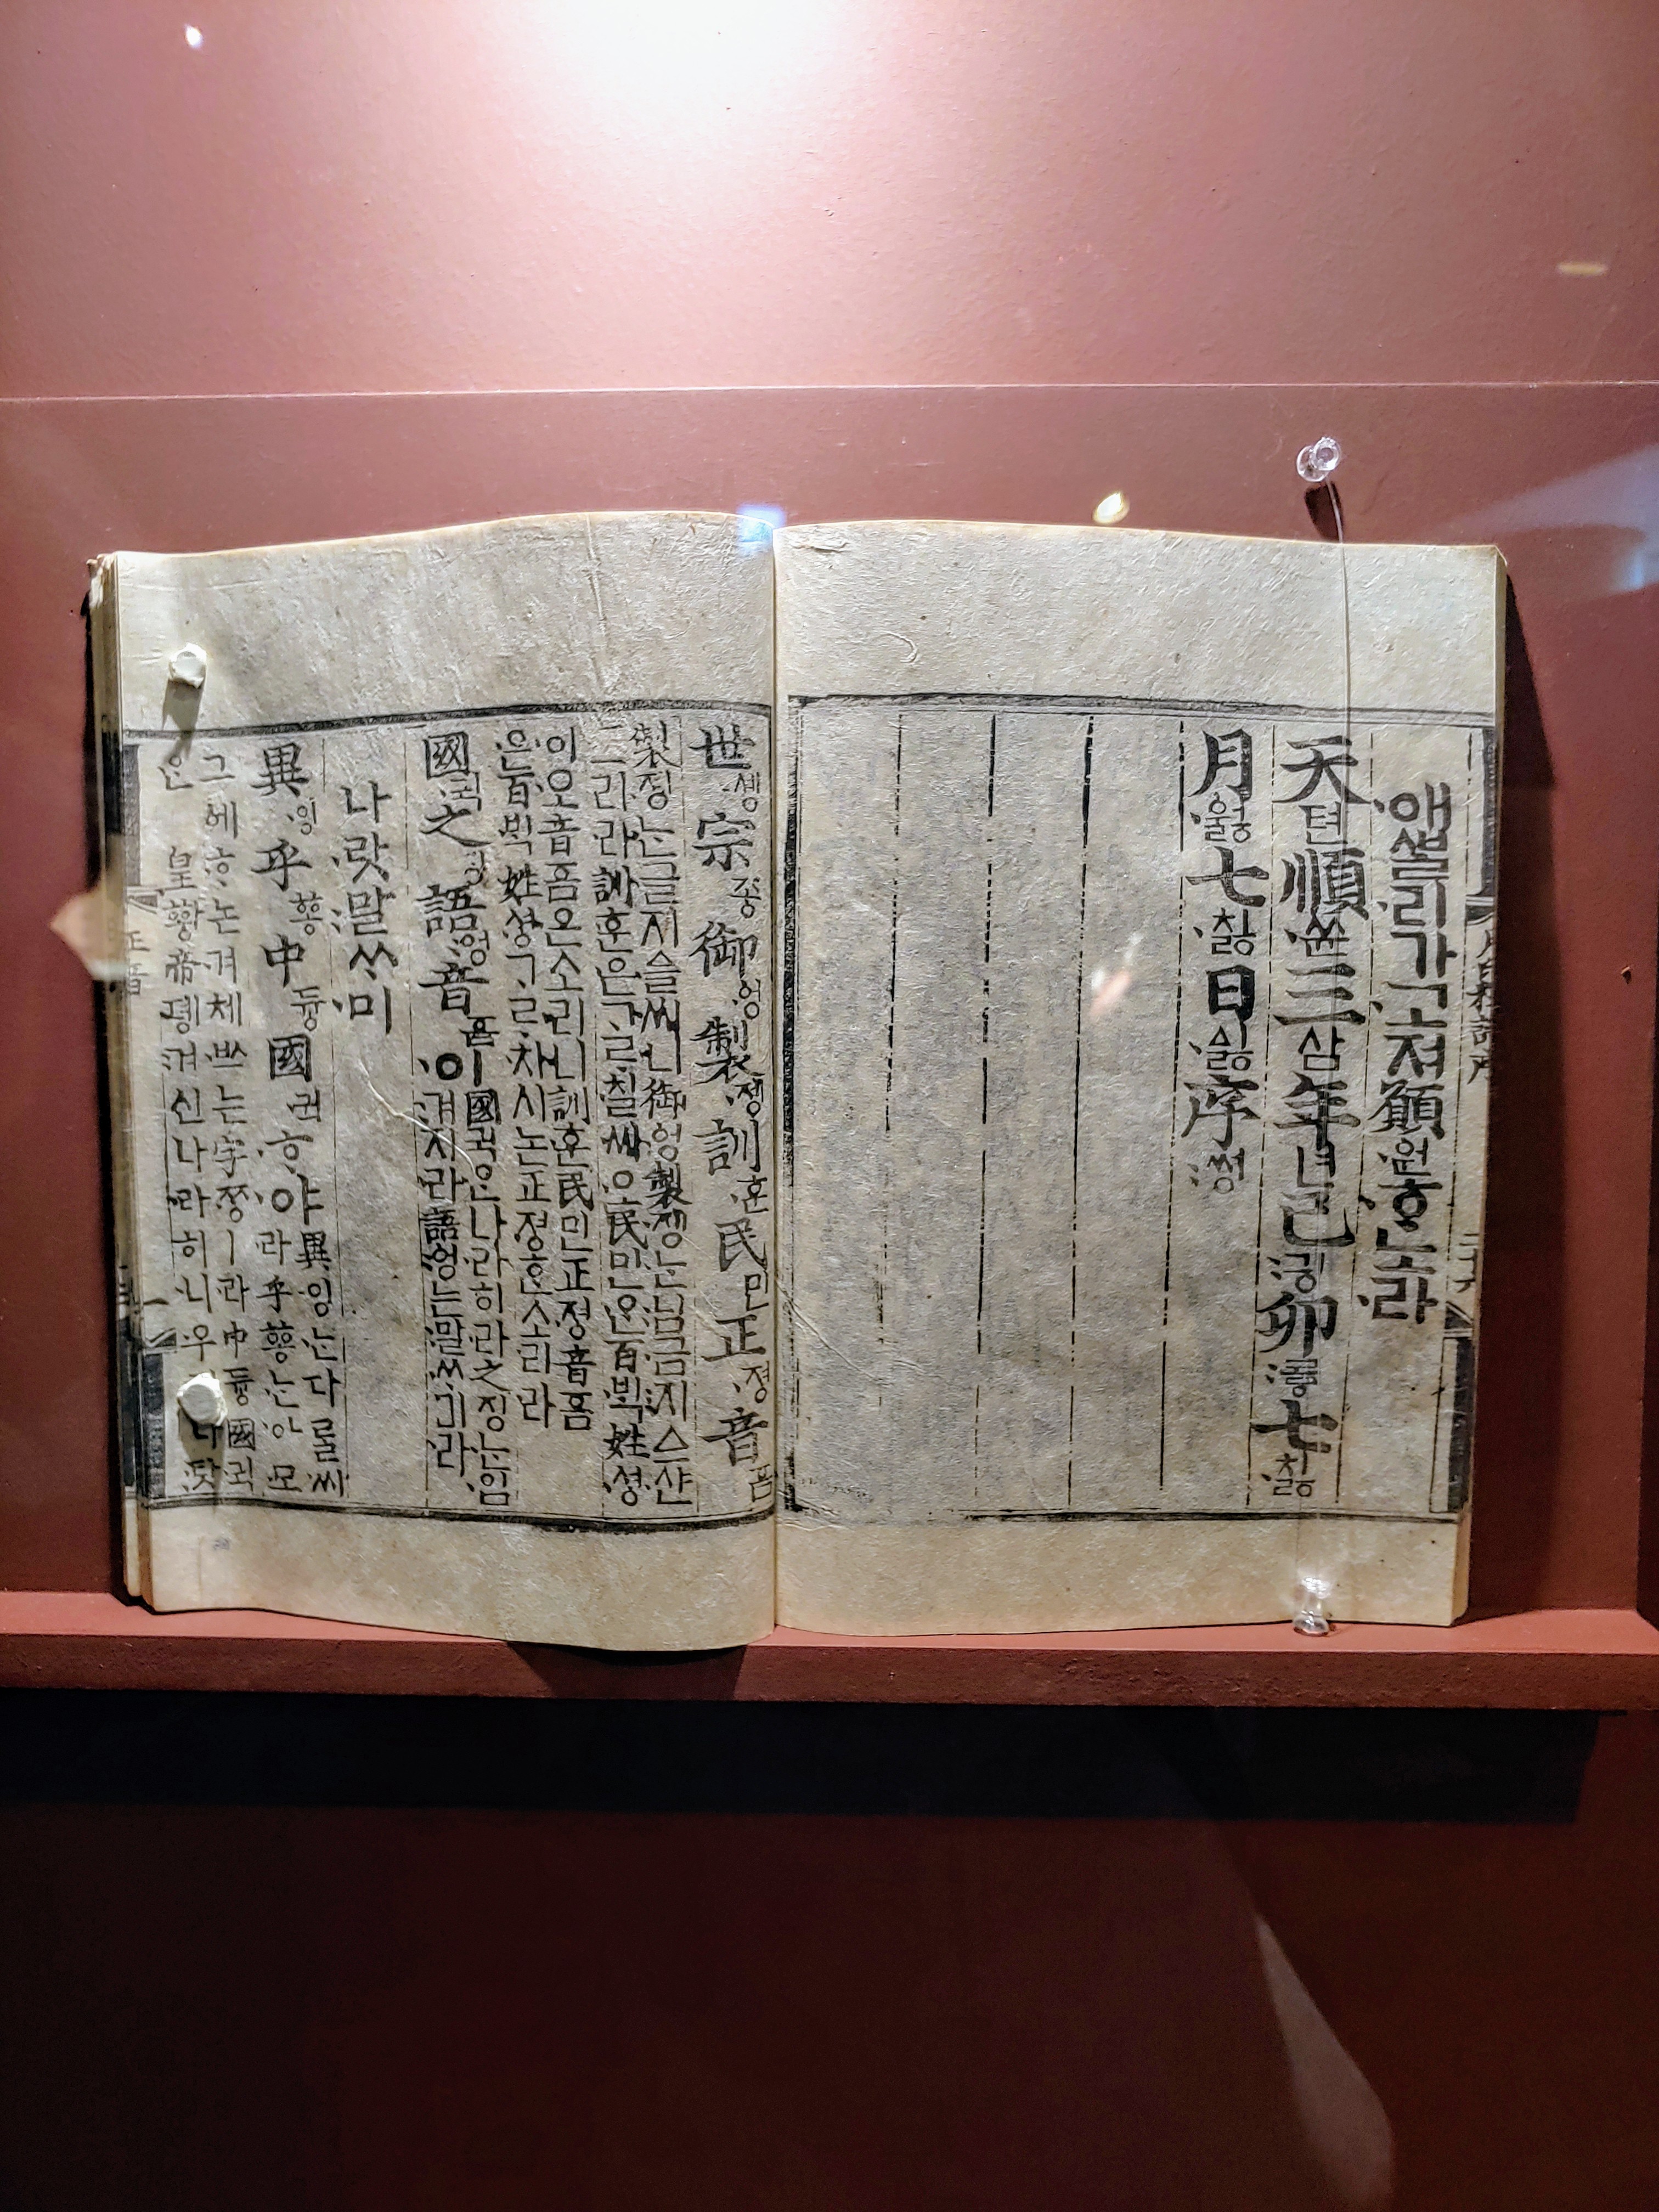 애ᄲᆞᆯ리가고져願ᅌᅯᆫᄒᆞ노라
天텬順쓘三삼年년己긩卯ᄆᆞᇢ七칧
月ᅌᅯᇙ七칧日ᅀᅵᇙ序쎵
世솅宗조ᇰ御ᅌᅥᆼ製졩訓훈民민正져ᇰ音ᅙᅳᆷ
製졩는글지ᅀᅳᆯ씨니御ᅌᅥᆼ製졩는님금지ᅀᅳ샨
그리라訓훈은ᄀᆞᄅᆞ칠씨오民민ᄋᆞᆫ百ᄇᆡᆨ姓셔ᇰ
이오音ᅙᅳᆷ은소리니訓훈民민正져ᇰ音ᅙᅳᆷ
은百ᄇᆡᆨ姓셔ᇰᄀᆞᄅᆞ치시논正져ᇰᄒᆞᆫ소리라
國귁之징語ᅌᅥᆼ音ᅙᅳᆷ이
國귁ᄋᆞᆫ나라히라之징ᄂᆞᆫ입
겨지라語ᅌᅥᆼ는말ᄊᆞ미라
나랏말ᄊᆞ미
異잉乎ᅘᅩᆼ中듀ᇰ國귁ᄒᆞ야
異잉ᄂᆞᆫ다ᄅᆞᆯ씨
라乎ᅘᅩᆼᄂᆞᆫ아모
그ᅌᅦᄒᆞ논겨체ᄡᅳ는字ᄍᆞᆼㅣ라中듀ᇰ國귁
ᄋᆞᆫ皇ᅘᅪᇰ帝뎽겨신나라히니우 나랏
正音